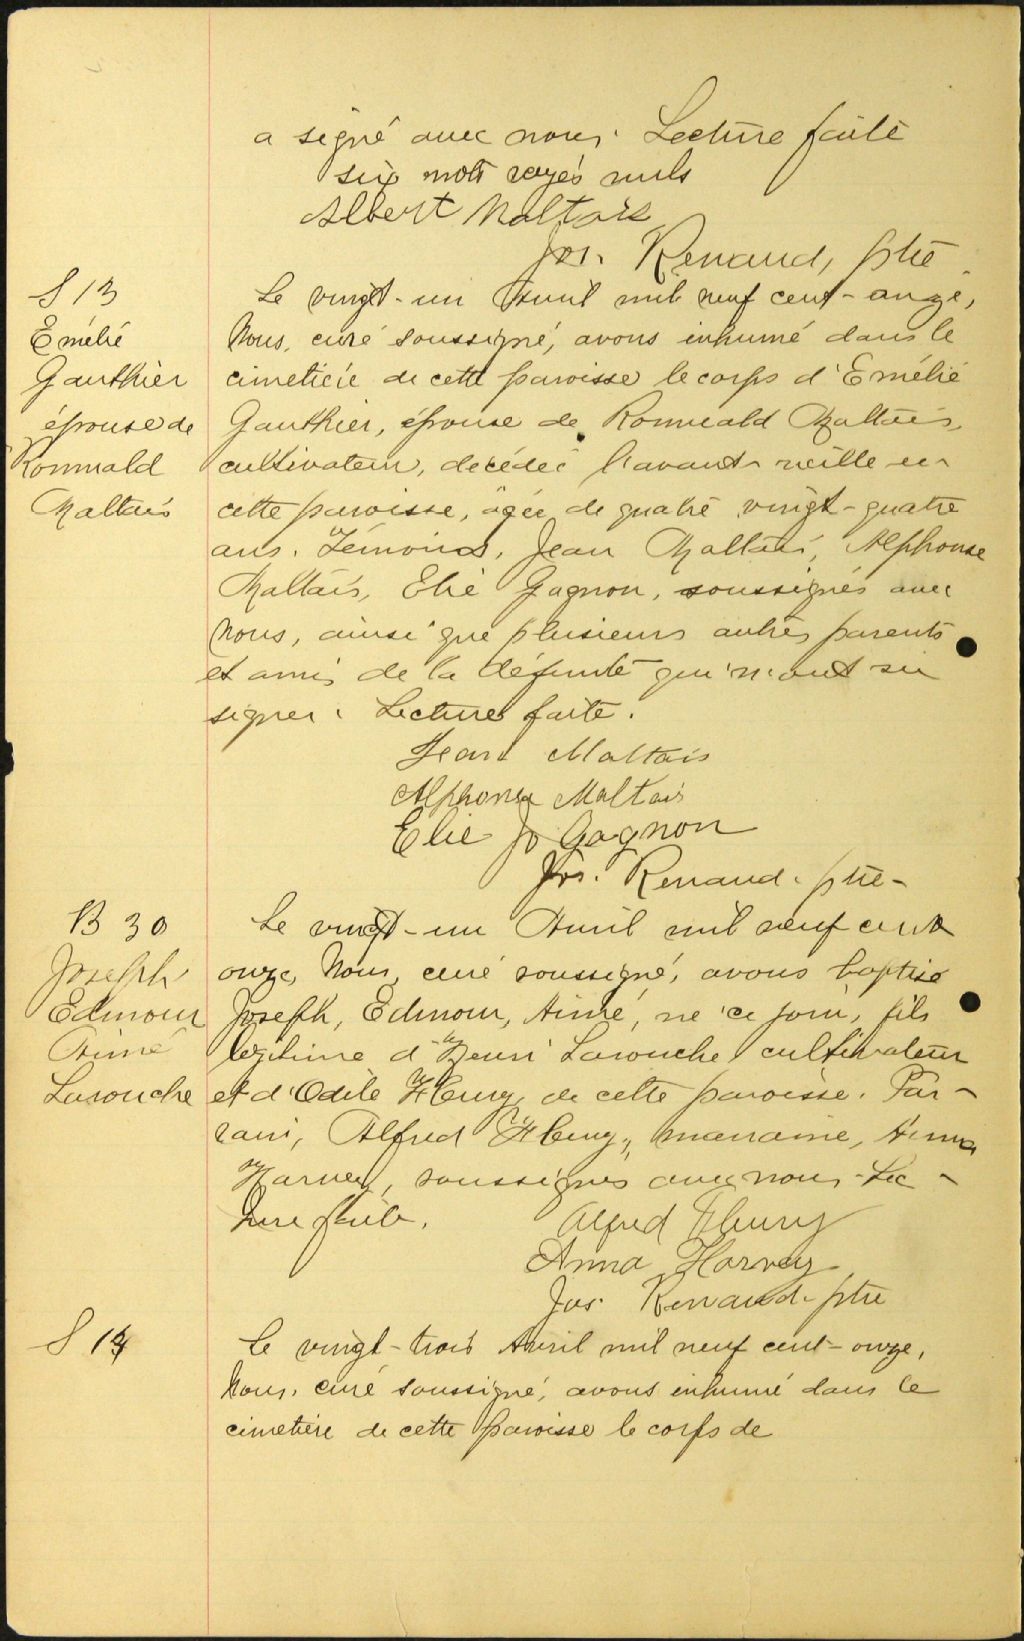 a signé avec nous. Lecture faite
six mots rayés nuls
Albert Maltais
Jos. Renaud, ptre
S 13
Emélie
Gauthier
épouse de
Romuald
Maltais
Le vingt-un Avril mil neuf cent-onze,
Nous, curé soussigné, avons inhumé dans le
cimetière de cette paroisse le corps d'Emélie
Gauthier, épouse de Romuald Maltais,
cultivateur, décédée l'avant-veille en
cette paroisse, âgée de quatre vingt-quatre
ans. Témoins, Jean Maltais, Alphonse
Maltais, Elie Gagnon, soussignés avec
nous, ainsi que plusieurs autres parents
et amis de la défunte qui n'ont su
signer. Lecture faite.
Jean Maltais
Alphonse Maltais
Elie Jo Gagnon
Jos. Renaud. ptre-
B 30
Joseph
Edmour
Aimé
Larouche
Le vingt-un Avril mil neuf cent
onze, Nous, curé soussigné, avons baptisé
Joseph, Edmour, Aimé, né ce jour, fils
légitime d'Henri Larouche cultivateur
et d'Odile Fleury de cette paroisse. Par-
rain, Alfred Fleury, marraine, Anna
Harvey, soussignés avec nous. Lec-
ture faite.
Alfred Fleury
Anna Harvey
Jos. Renaud. ptre
S 14
Le vingt-trois Avril mil neuf cent-onze,
Nous, curé soussigné, avons inhumé dans le
cimetière de cette paroisse le corps de